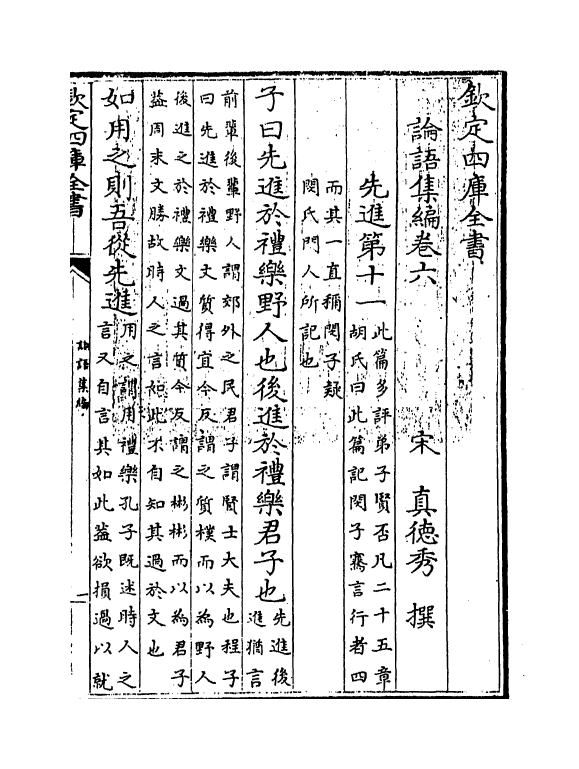 欽定四庫全書
論語集編卷六
宋 真德秀 撰
先進第十一
此篇多評弟子賢否凡二十五章
胡氏曰此篇記閔子騫言行者四
而其一直稱閔子疑
閔氏門人所記也
子曰先進於禮樂野人也後進於禮樂君子也
先進後
進猶言
前輩後輩野人謂郊外之民君子謂賢士大夫也程子
曰先進於禮樂文質得宜今反謂之質樸而以為野人
後進之於禮樂文過其質今反謂之彬彬而以為君子
蓋周末文勝故時人之言如此不自知其過於文也
如用之則吾從先進
用之謂用禮樂孔子既述時人之
言又自言其如此蓋欲損過以就
欽定四庫全書
論語集編
一